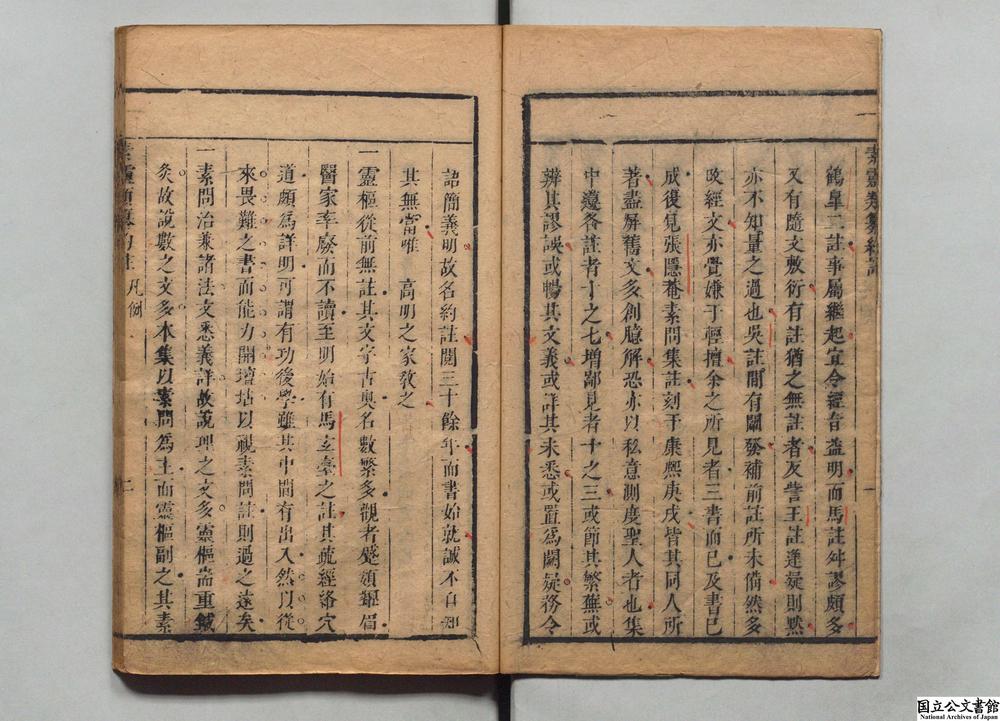 素靈類纂約註
鶴臯二註事屬繼起宜令經旨益明而馬註舛謬頗多
又有隨文敷衍有註猶之無註者反訾王註逢疑則默
亦不知量之過也吳註間有闡發補前註所未備然多
改經文亦覺嫌于輕擅余之所見者三書而已及書已
成後見張隱菴素問集註刻于康熙庚戌皆其同人所
著盡屏舊文多創臆解恐亦以私意測度聖人者也集
中遵各註者十之七增鄙見者十之三或節其繁蕪或
辨其謬誤或暢其文義或詳其未悉或置為闕疑務令
語簡義明故名約註閱三十餘年而書始就誠不自知
其無當唯　高明之家敎之
一靈樞從前無註其文字古奧名數繁多觀者蹙頞顰眉
醫家率廢而不讀至明始有馬玄臺之註其疏經絡穴
道頗為詳明可謂有功後學雖其中間有出入然以從
來畏難之書而能力開壇坫以視素問註則過之遠矣
一素問治兼諸法文悉義詳故說理之文多靈樞耑重鍼
灸故說數之文多本集以素問為主而靈樞副之其素
素靈類纂約註　凡例　二
国立公文書館
National Archives of Japan